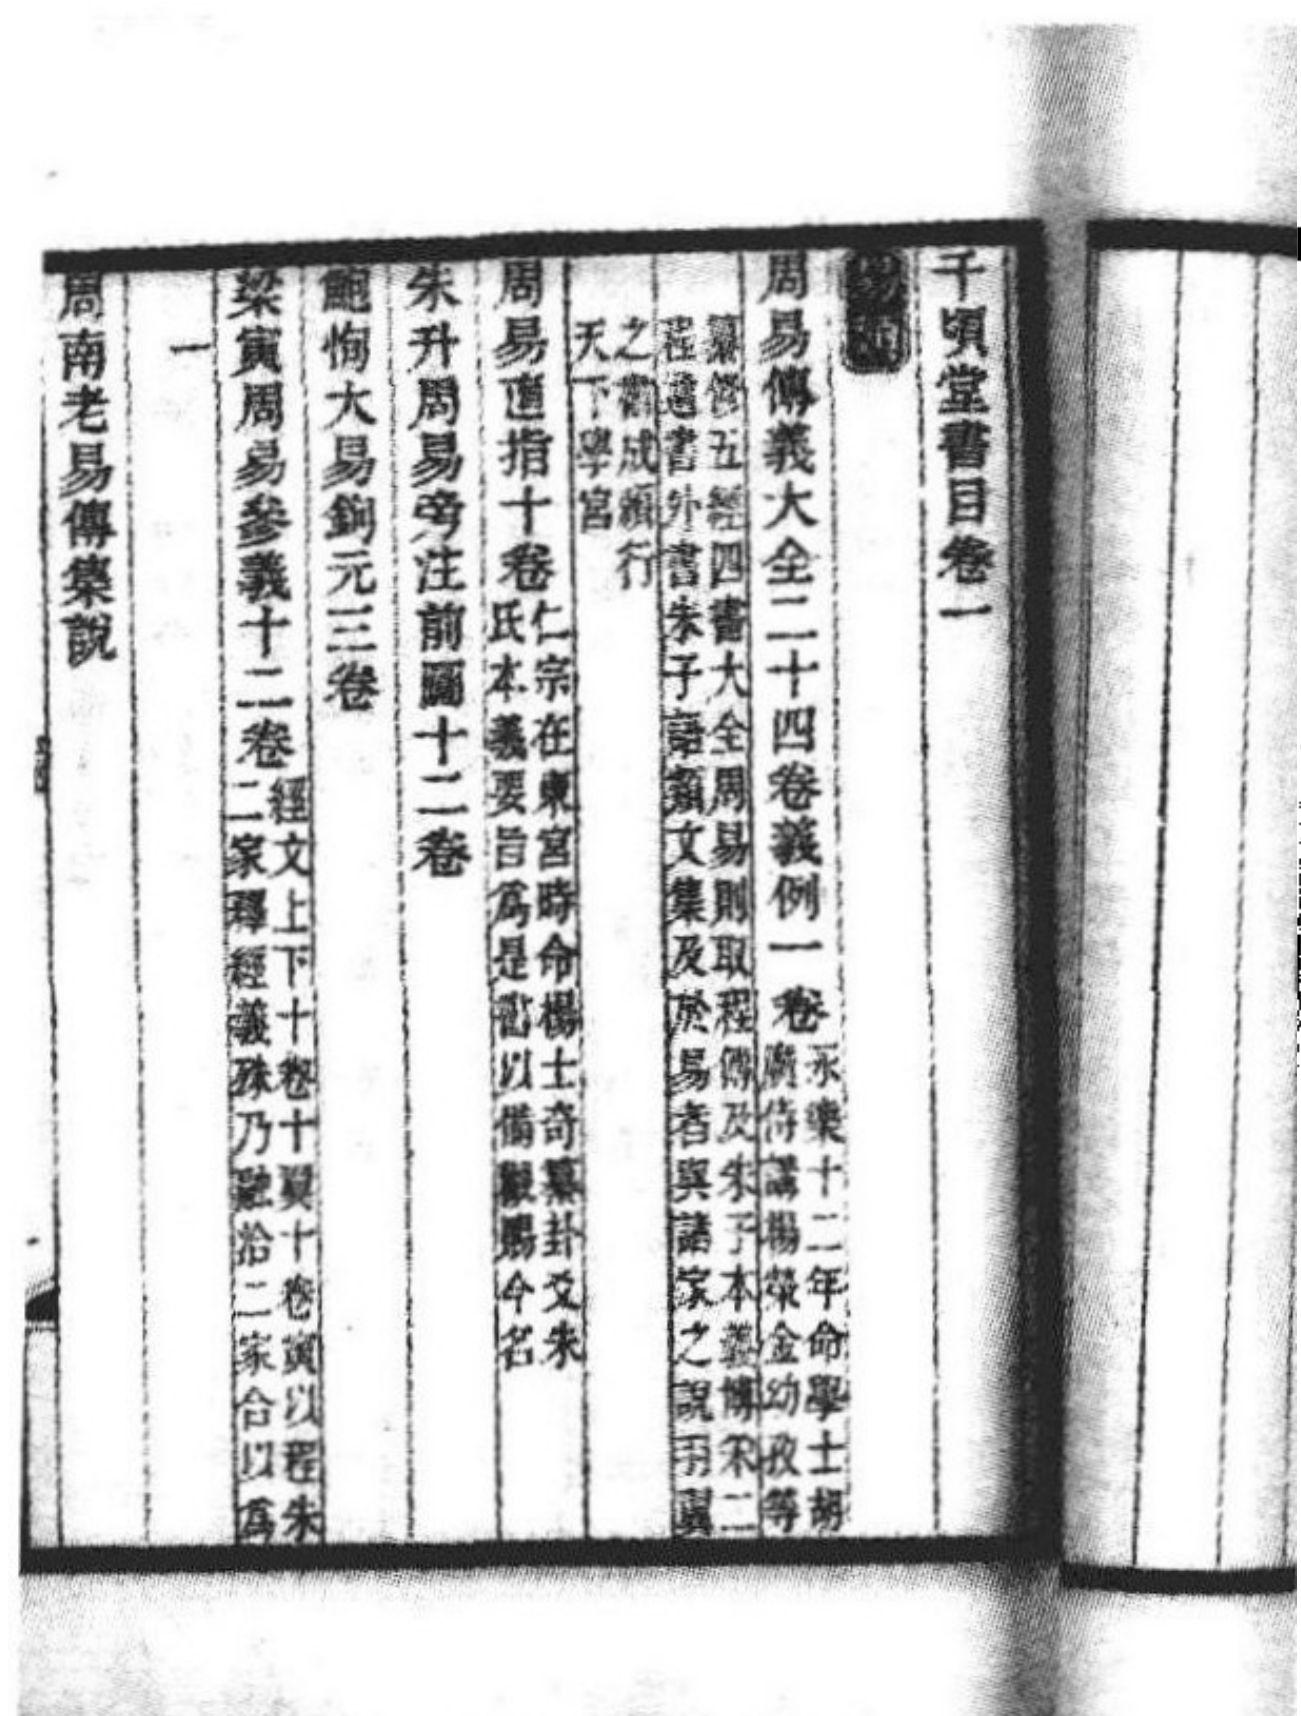 千頃堂書目卷一
易類
周易傳義大全二十四卷義例一卷
永樂十二年命學士胡
廣侍講楊榮金幼孜等
纂修五經四書大全周易則取程傳及朱子本義博采二
程遺書外書朱子語類文集及於易者與諸家之說羽翼
之書成頒行
天下學宮
周易直指十卷
仁宗在東宮時命楊士奇纂卦爻朱
氏本義要旨爲是書以備觀賜今名
朱升周易旁注前圖十二卷
鮑恂大易鉤元三卷
梁寅周易參義十二卷
經文上下十卷十翼十卷寅以程朱
二家釋經義殊乃融洽二家合以爲
一
周南老易傳集說